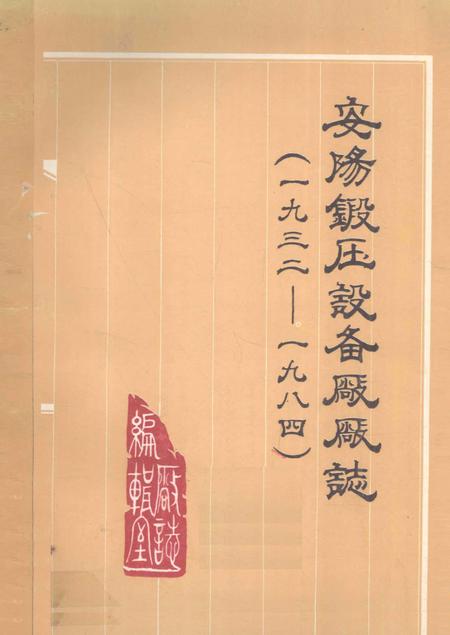 安陽鍛压設备廠廠誌
(一九三二—一九八四)
廠誌
編輯室